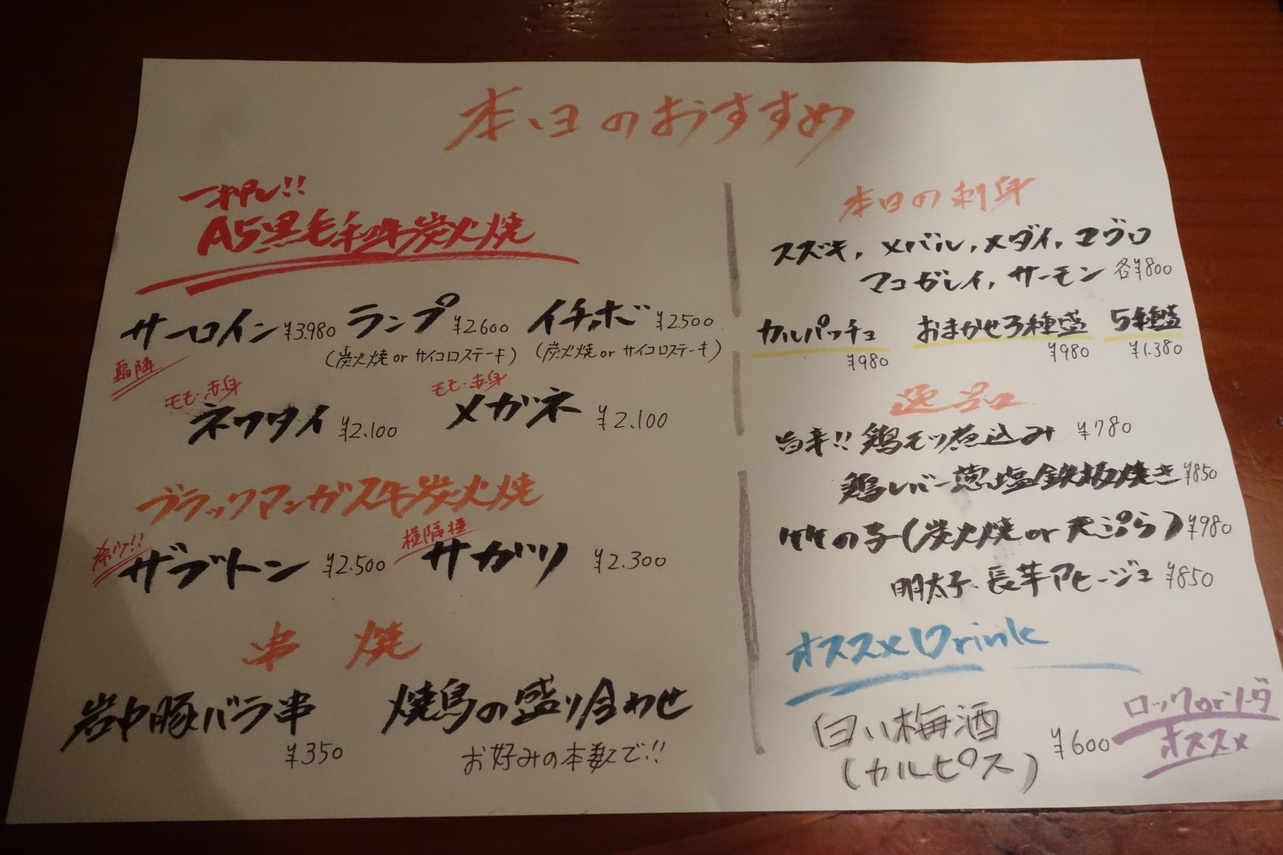 本日のおすすめ
一押し!!
A5黒毛和牛炭火焼
サーロイン ¥3.980 ランプ ¥2600 イチボ ¥2500
(炭火焼 or サイコロステーキ) (炭火焼 or サイコロステーキ)
霜降
モモ・赤身 モモ・赤身
ネクタイ ¥2.100 メガネ ¥2.100
ブラックマンガス牛炭火焼
ザブトン ¥2.500 サガリ ¥2.300
串焼
岩中豚バラ串 焼鳥の盛り合わせ
¥350 お好みの本数で!!
本日の刺身
スズキ, メバル, メダイ, マグロ
マコガレイ, サーモン 各¥800
カルパッチョ おまかせ3種盛 5種盛
¥980 ¥980 ¥1.380
逸品
旨辛!! 鶏モツ煮込み ¥780
鶏レバー葱塩鉄板焼き ¥850
竹の子(炭火焼 or 天ぷら) ¥980
明太子・長芋アヒージョ ¥850
オススメDrink
白い梅酒 ¥600 ロック or ソーダ
(カルピス) オススメ